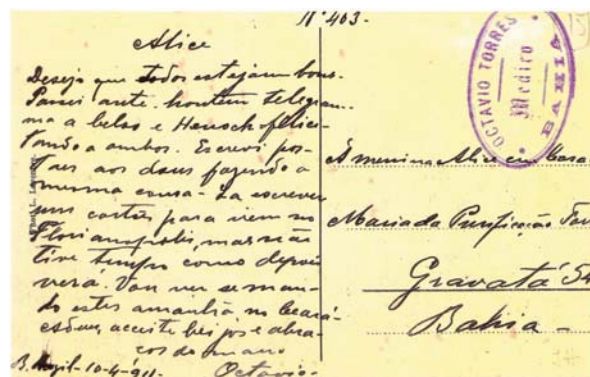 Nº 403.
Alice
Desejo que todos estejam bons.
Passei ante-hontem telegram-
ma a Celso e Henoch felici-
tando a ambos. Escrevi pos-
taes aos dous fazendo a
mesma cousa. Ia escrever
uns cartões para irem no
Florianopolis, mas não
tive tempo como depois
verá. Vou ver se man-
do estes amanhã no Ceará.
Adeus, acceite beijos e abra-
ços do mano
Octavio.
10-4-911.
OCTAVIO TORRES
Medico
BAHIA
Á menina Alice em casa
Maria da Purificação
Gravatá 54
Bahia